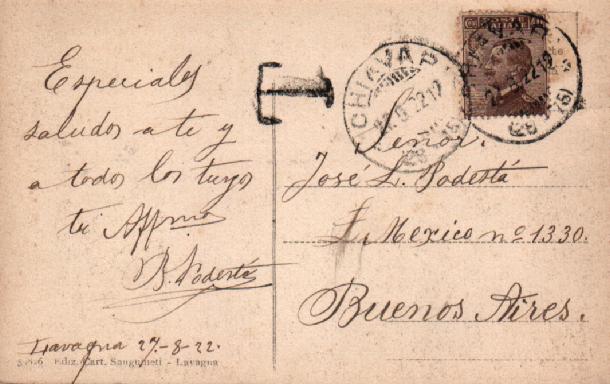 Especiales
saludos a te y
a todos los tuyos
tu Affmo
B. Podestá
Lavagna 27-8-22.
Ediz. Cart. Sanguineti - Lavagna
T
CHIAVARI
Señor.
José L. Podestá
Mexico nº 1330.
Buenos Aires.